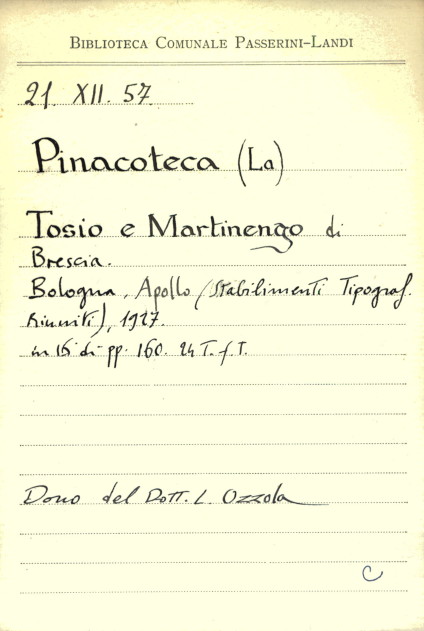 BIBLIOTECA COMUNALE PASSERINI-LANDI
21. XII. 57
Pinacoteca (La)
Tosio e Martinengo di
Brescia.
Bologna, Apollo (Stabilimenti Tipograf.
Riuniti), 1927.
in 16 di pp. 160. 24 T. f. T.
Dono del Dott. L. Ozzola
C